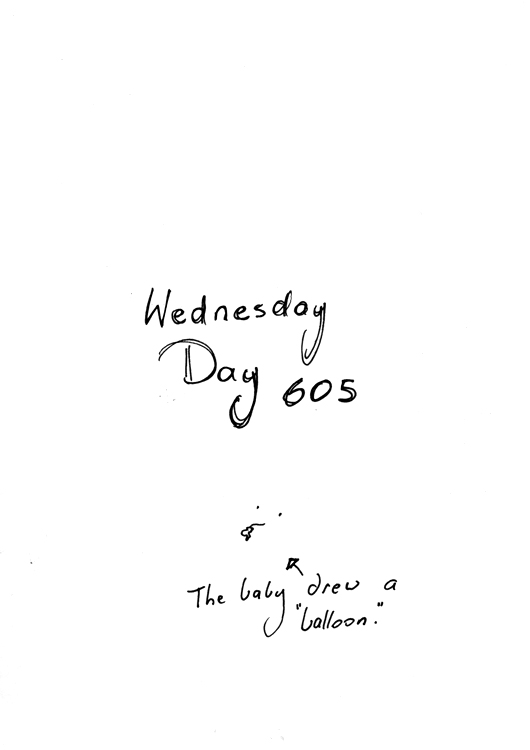 Wednesday
Day 605
The baby drew a
"balloon."